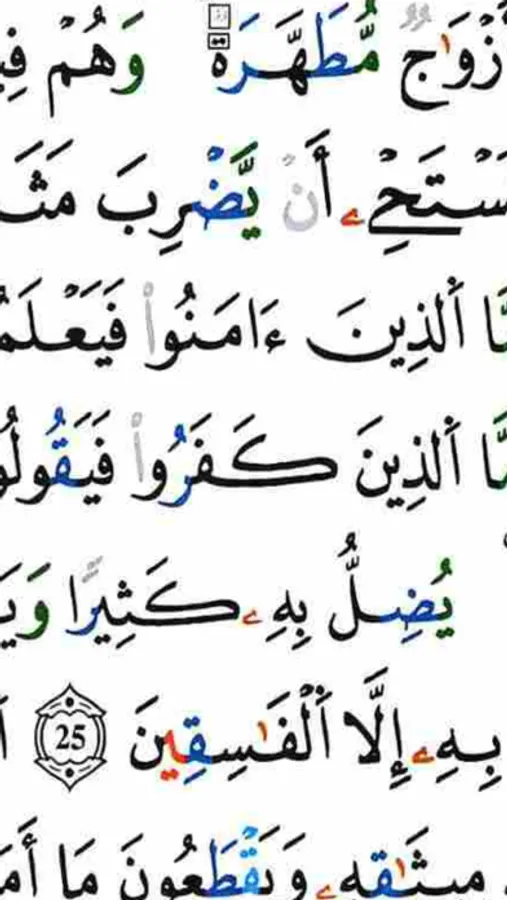 أَزْوَٰجٌ مُّطَهَّرَةٌ وَهُمْ فِي
سْتَحْيِۦٓ أَنْ يَّضْرِبَ مَثَ
مَّا اَ۬لذِينَ ءَامَنُواْ فَيَعْلَمُ
مَّا اَ۬لذِينَ كَفَرُواْ فَيَقُولُو
يُضِلُّ بِهِۦ كَثِيرًا وَيَ
بِهِۦٓ إِلَّا اَ۬لْفَٰسِقِينَ 25 اَ
مِيثَٰقِهِۦ وَيَقْطَعُونَ مَا أَمَ